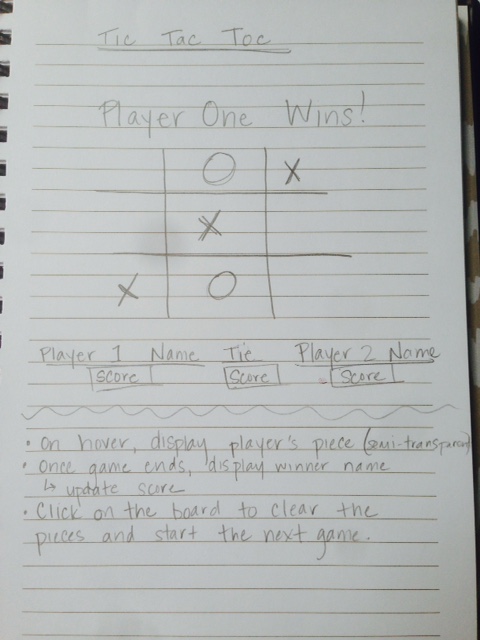 Tic Tac Toc
Player One Wins!
O X
X
X O
Player 1 Name Tie Player 2 Name
score score score
• on hover, display player's piece (semi-transparent)
• once game ends, display winner name
↳ update score
• Click on the board to clear the
pieces and start the next game.